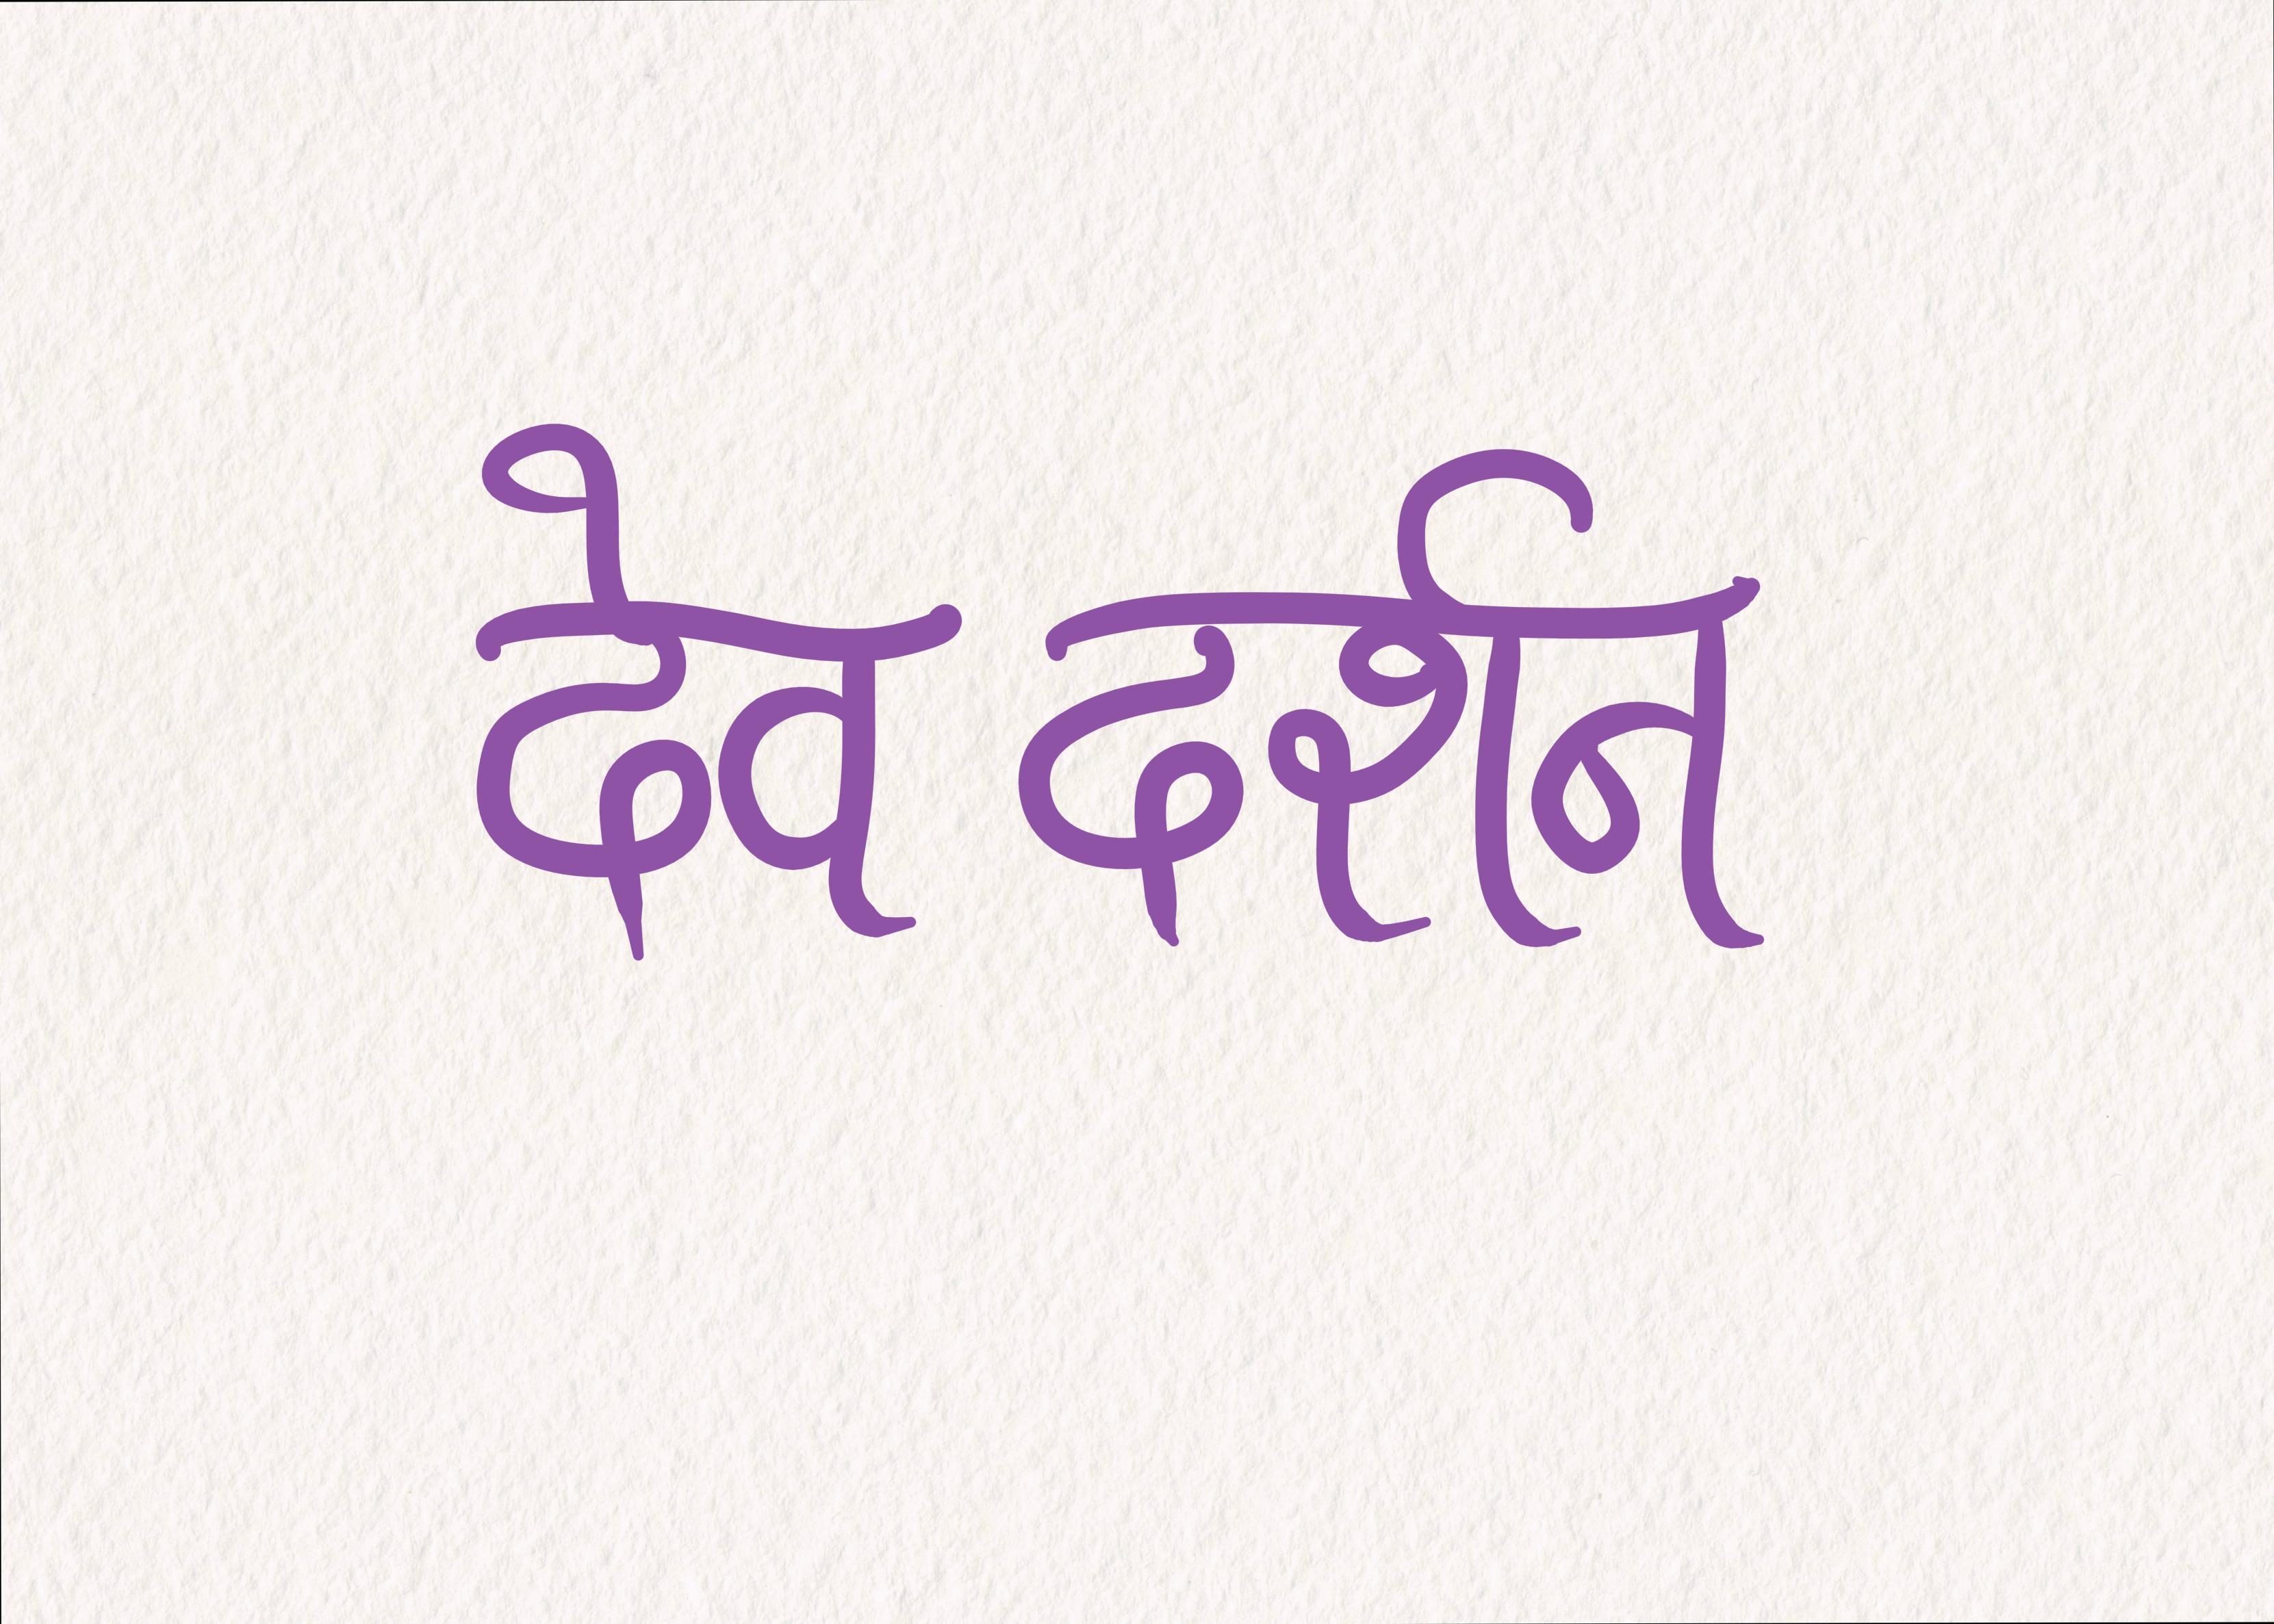 देव दर्शन